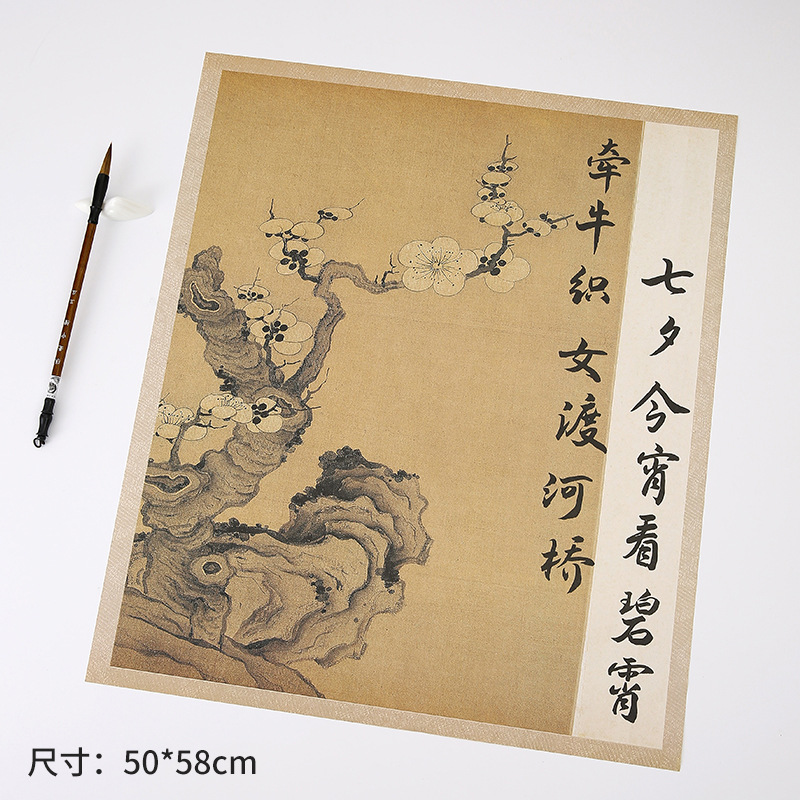 七夕今宵看碧霄
牵牛织女渡河桥
尺寸：50*58cm